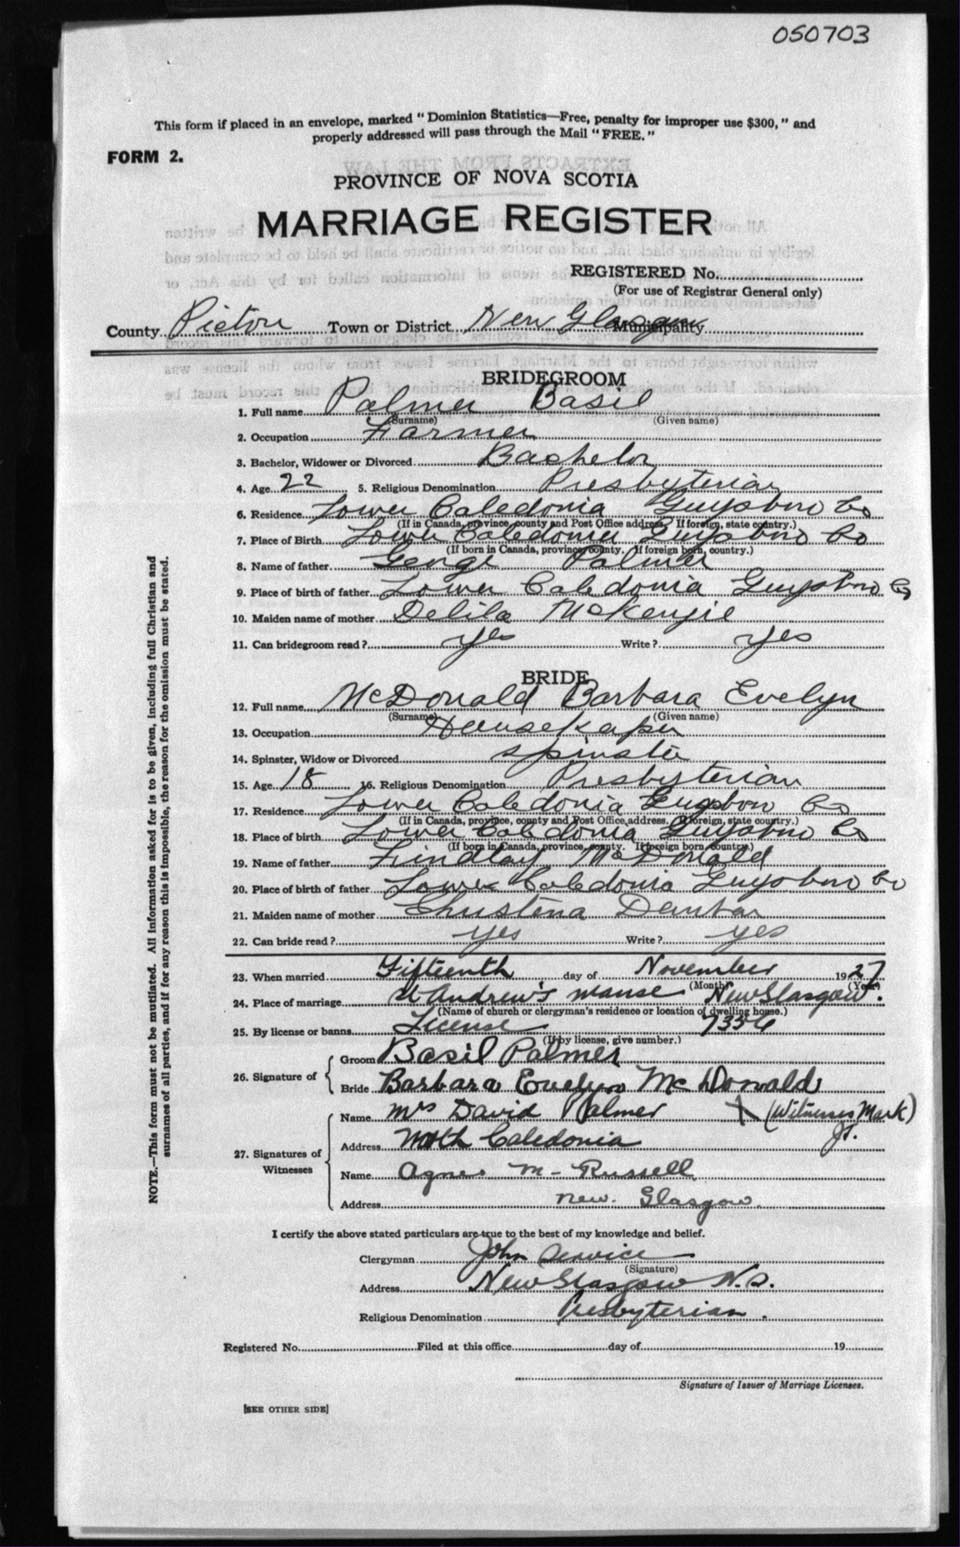 050703
This form if placed in an envelope, marked "Dominion Statistics—Free, penalty for improper use $300," and
properly addressed will pass through the Mail "FREE."
FORM 2.
PROVINCE OF NOVA SCOTIA
MARRIAGE REGISTER
REGISTERED No.
(For use of Registrar General only)
County Pictou Town or District New Glasgow Municipality
BRIDEGROOM
1. Full name Palmer Basil
(Surname) (Given name)
2. Occupation Farmer
3. Bachelor, Widower or Divorced Bachelor
4. Age 22 5. Religious Denomination Presbyterian
6. Residence Lower Caledonia Guysboro Co
(If in Canada, province, county and Post Office address. If foreign, state country.)
7. Place of Birth Lower Caledonia Guysboro Co
(If born in Canada, province, county. If foreign born, country.)
8. Name of father George Palmer
9. Place of birth of father Lower Caledonia Guysboro Co
10. Maiden name of mother Delila McKenzie
11. Can bridegroom read? yes Write? yes
BRIDE
12. Full name McDonald Barbara Evelyn
(Surname) (Given name)
13. Occupation Housekaper
14. Spinster, Widow or Divorced spinster
15. Age 18 16. Religious Denomination Presbyterian
17. Residence Lower Caledonia Guysboro Co
(If in Canada, province, county and Post Office address. If foreign, state country.)
18. Place of birth Lower Caledonia Guysboro Co
(If born in Canada, province, county. If foreign born country.)
19. Name of father Findlay McDonald
20. Place of birth of father Lower Caledonia Guysboro Co
21. Maiden name of mother Christena Dunbar
22. Can bride read? yes Write? yes
23. When married Fifteenth day of November 1927
(Month) (Year)
24. Place of marriage St Andrew's manse New Glasgow.
(Name of church or clergyman's residence or location of dwelling house.)
25. By license or banns License 7356
(If by license, give number.)
26. Signature of
Groom Basil Palmer
Bride Barbara Evelyn McDonald
27. Signatures of Witnesses
Name Mrs David Palmer X (Witnesses Mark)
Address North Caledonia
Name Agnes M- Russell
Address New. Glasgow.
I certify the above stated particulars are true to the best of my knowledge and belief.
Clergyman John Service
(Signature)
Address New Glasgow N.S.
Religious Denomination Presbyterian.
Registered No. Filed at this office day of 19
Signature of Issuer of Marriage Licenses.
[SEE OTHER SIDE]
NOTE.—This form must not be mutilated. All information asked for is to be given, including full Christian and
surnames of all parties, and if for any reason this is impossible, the reason for the omission must be stated.